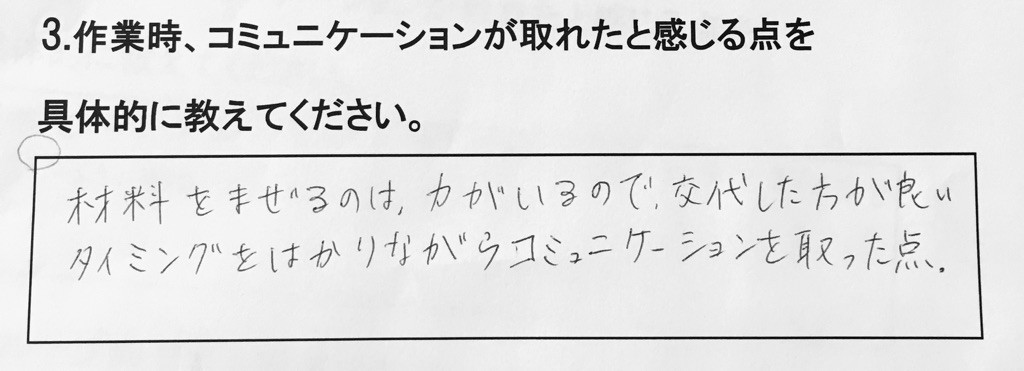 3.作業時、コミュニケーションが取れたと感じる点を
具体的に教えてください。
材料をまぜるのは, 力がいるので, 交代した方が良い
タイミングをはかりながらコミュニケーションを取った点.